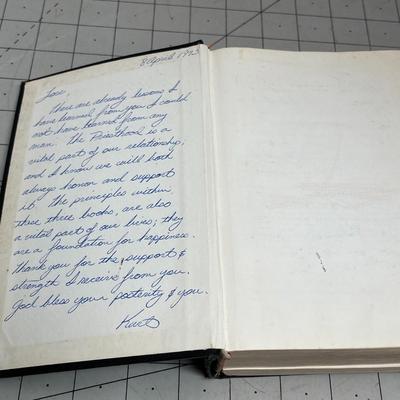 8 April 1983
There are already lessons I
have learned from you I could
not have learned from any
man. The Priesthood is a
vital part of our relationship;
and I know we will both
always honor and support
it. The principles within
these three books, are also
a vital part of our lives; they
are a foundation for happiness.
Thank you for the support &
strength I receive from you.
God bless your posterity & you.
Kurt